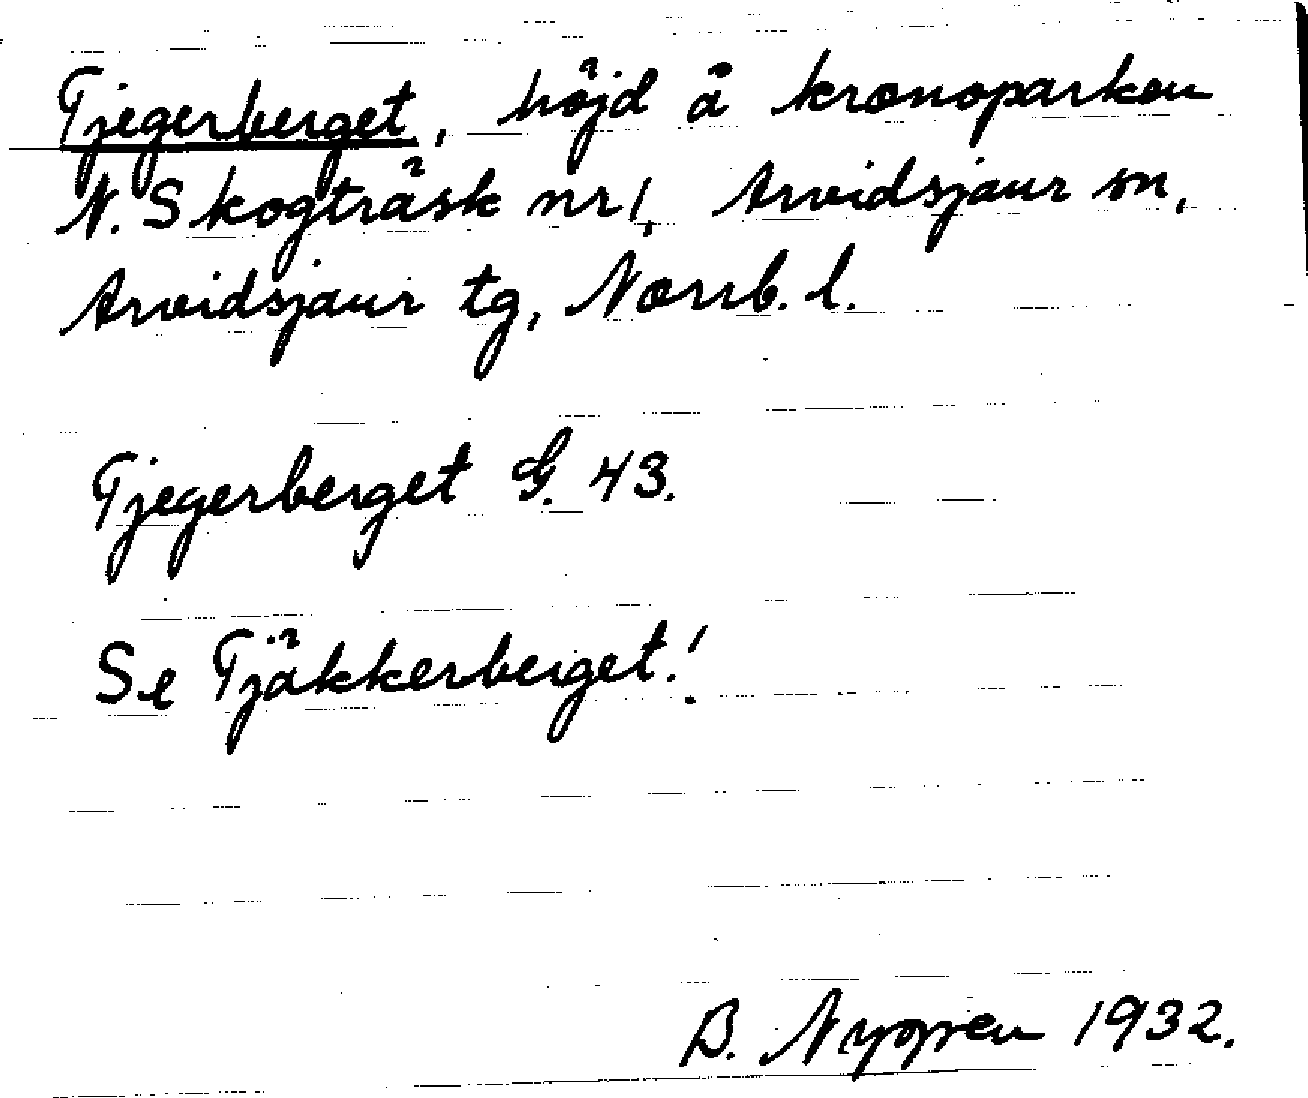 Tjegerberget, höjd å kronoparken
N. Skogträsk nr 1, Arvidsjaur sn,
Arvidsjaur tg, Norrb. l.
Tjegerberget G. 43.
Se Tjäkkerberget!
B. Nygren 1932.